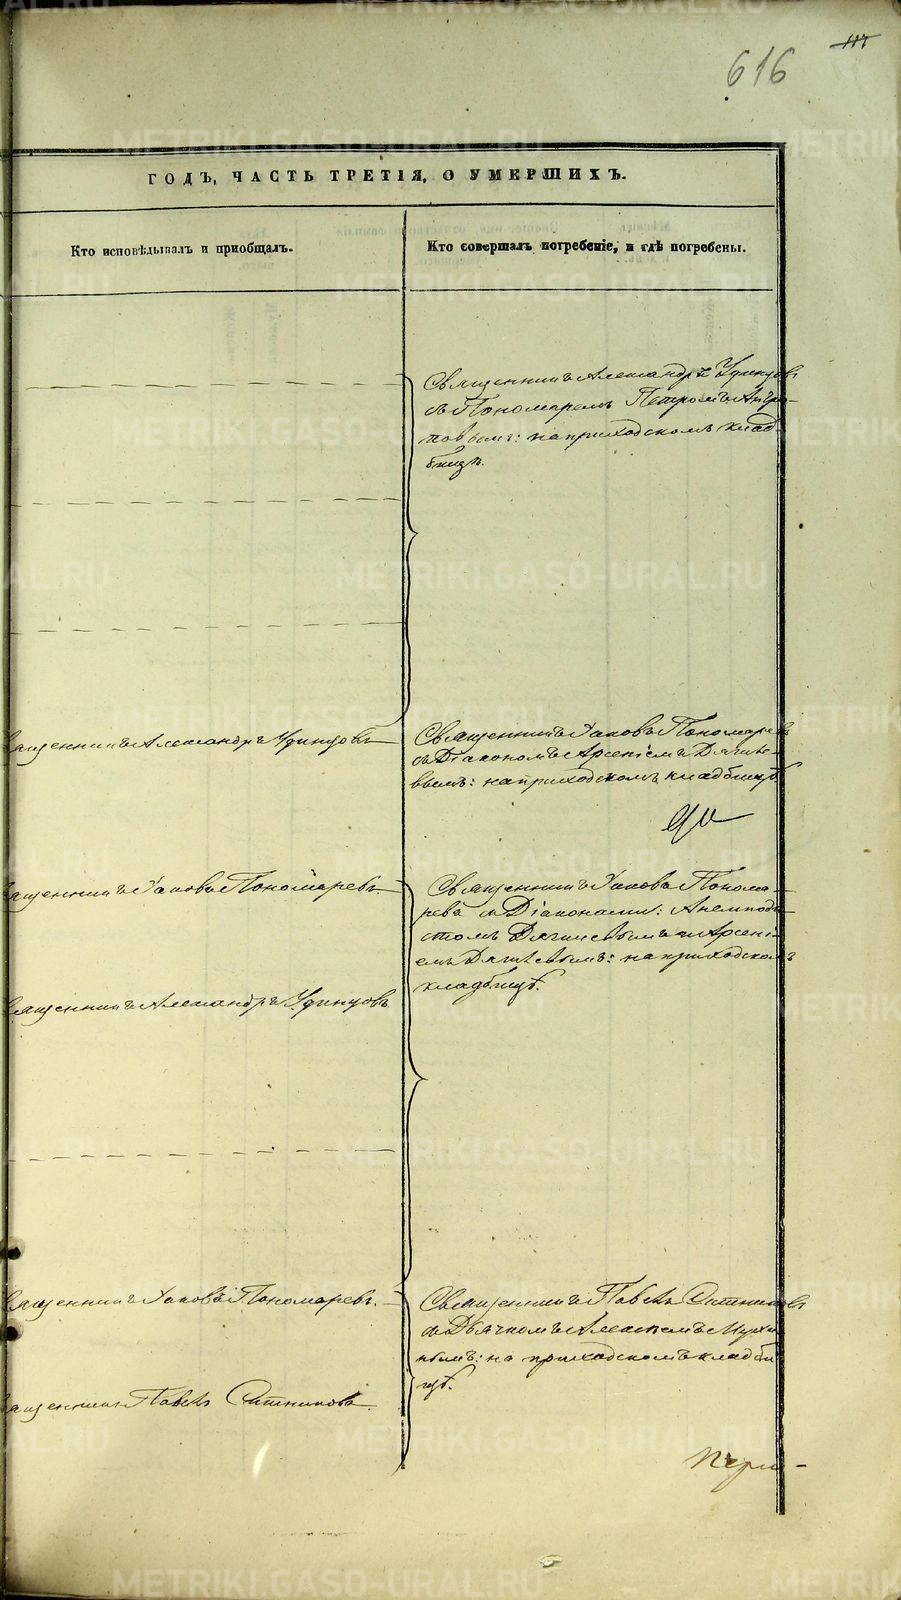 616
ГОДЪ, ЧАСТЬ ТРЕТІЯ, О УМЕРШИХЪ.
Кто исповѣдывалъ и приобщалъ.
Кто совершалъ погребеніе, и гдѣ погребены.
Священникъ Александръ Удинцовъ
съ Пономаремъ Петромъ
повымъ: на приходскомъ клад-
бищѣ.
вященникъ Александръ Удинцовъ
Священникъ Іаковъ Пономаревъ
съ Діакономъ Арсеніемъ Дягиле-
вымъ: на приходскомъ кладбищѣ
ященникъ Іаковъ Пономаревъ
Священникъ Іаковъ Понома-
ревъ съ Діаконами: Анемподи-
стомъ Дягилевымъ и Арсені-
емъ Дягилевымъ: на приходскомъ
кладбищѣ.
вященникъ Александръ Удинцовъ
вященникъ Іаковъ Пономаревъ.
Священникъ Павелъ Ситниковъ
съ Дьячкомъ
нымъ: на приходскомъ кладби
щѣ.
ященникъ Павелъ Ситниковъ.
METRIKI.GASO-URAL.RU